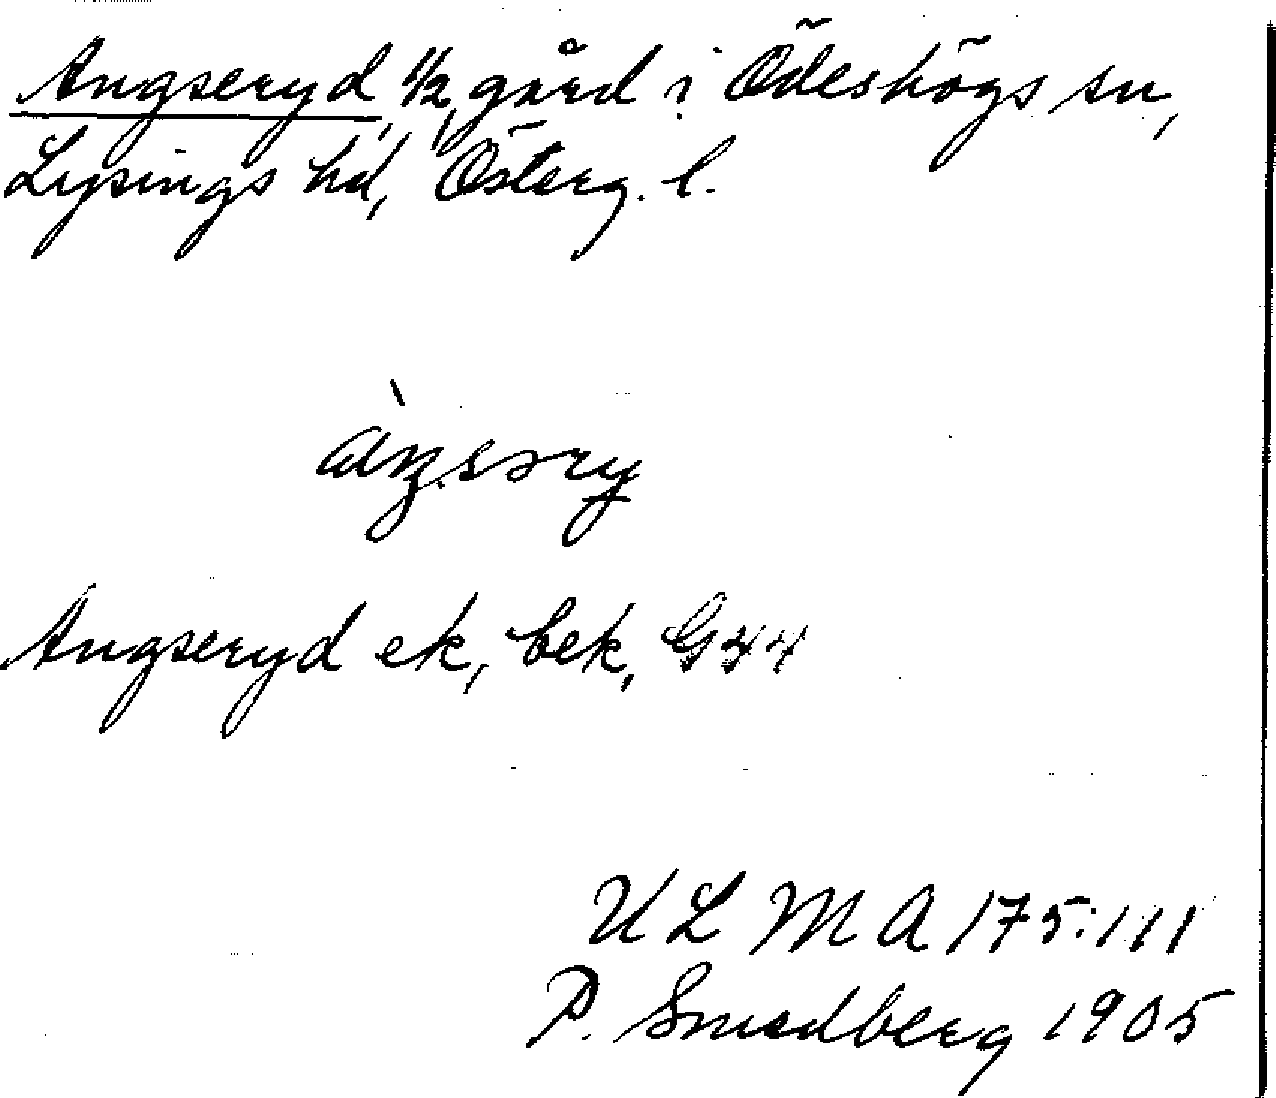 Angseryd, 1/2 gård i Ödeshögs sn,
Lysings hd, Österg. l.
àŋsəry
Angseryd ek, bek, G 44
ULMA 175:111
P. Smedberg 1905